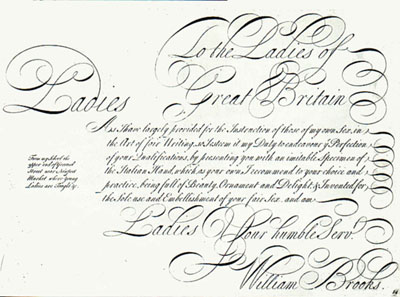 To the Ladies of
Great Britain
Ladies
As I have largely provided for the Instruction of those of my own Sex, in
the Art of fair Writing, so I esteem it my Duty to endeavour yᵉ Perfection
of your Qualifications, by presenting you with an imitable Specimen of
the Italian Hand, which, as your own, I recommend to your choice and
practice, being full of Beauty, Ornament and Delight, & Invented for
the Sole use and Embellishment of your fair Sex, and am
From my School the
upper end of Gerrard
Street near Newport
Market where Young
Ladies are Taught
Ladies Your humble Servᵗ.
William Brooks.